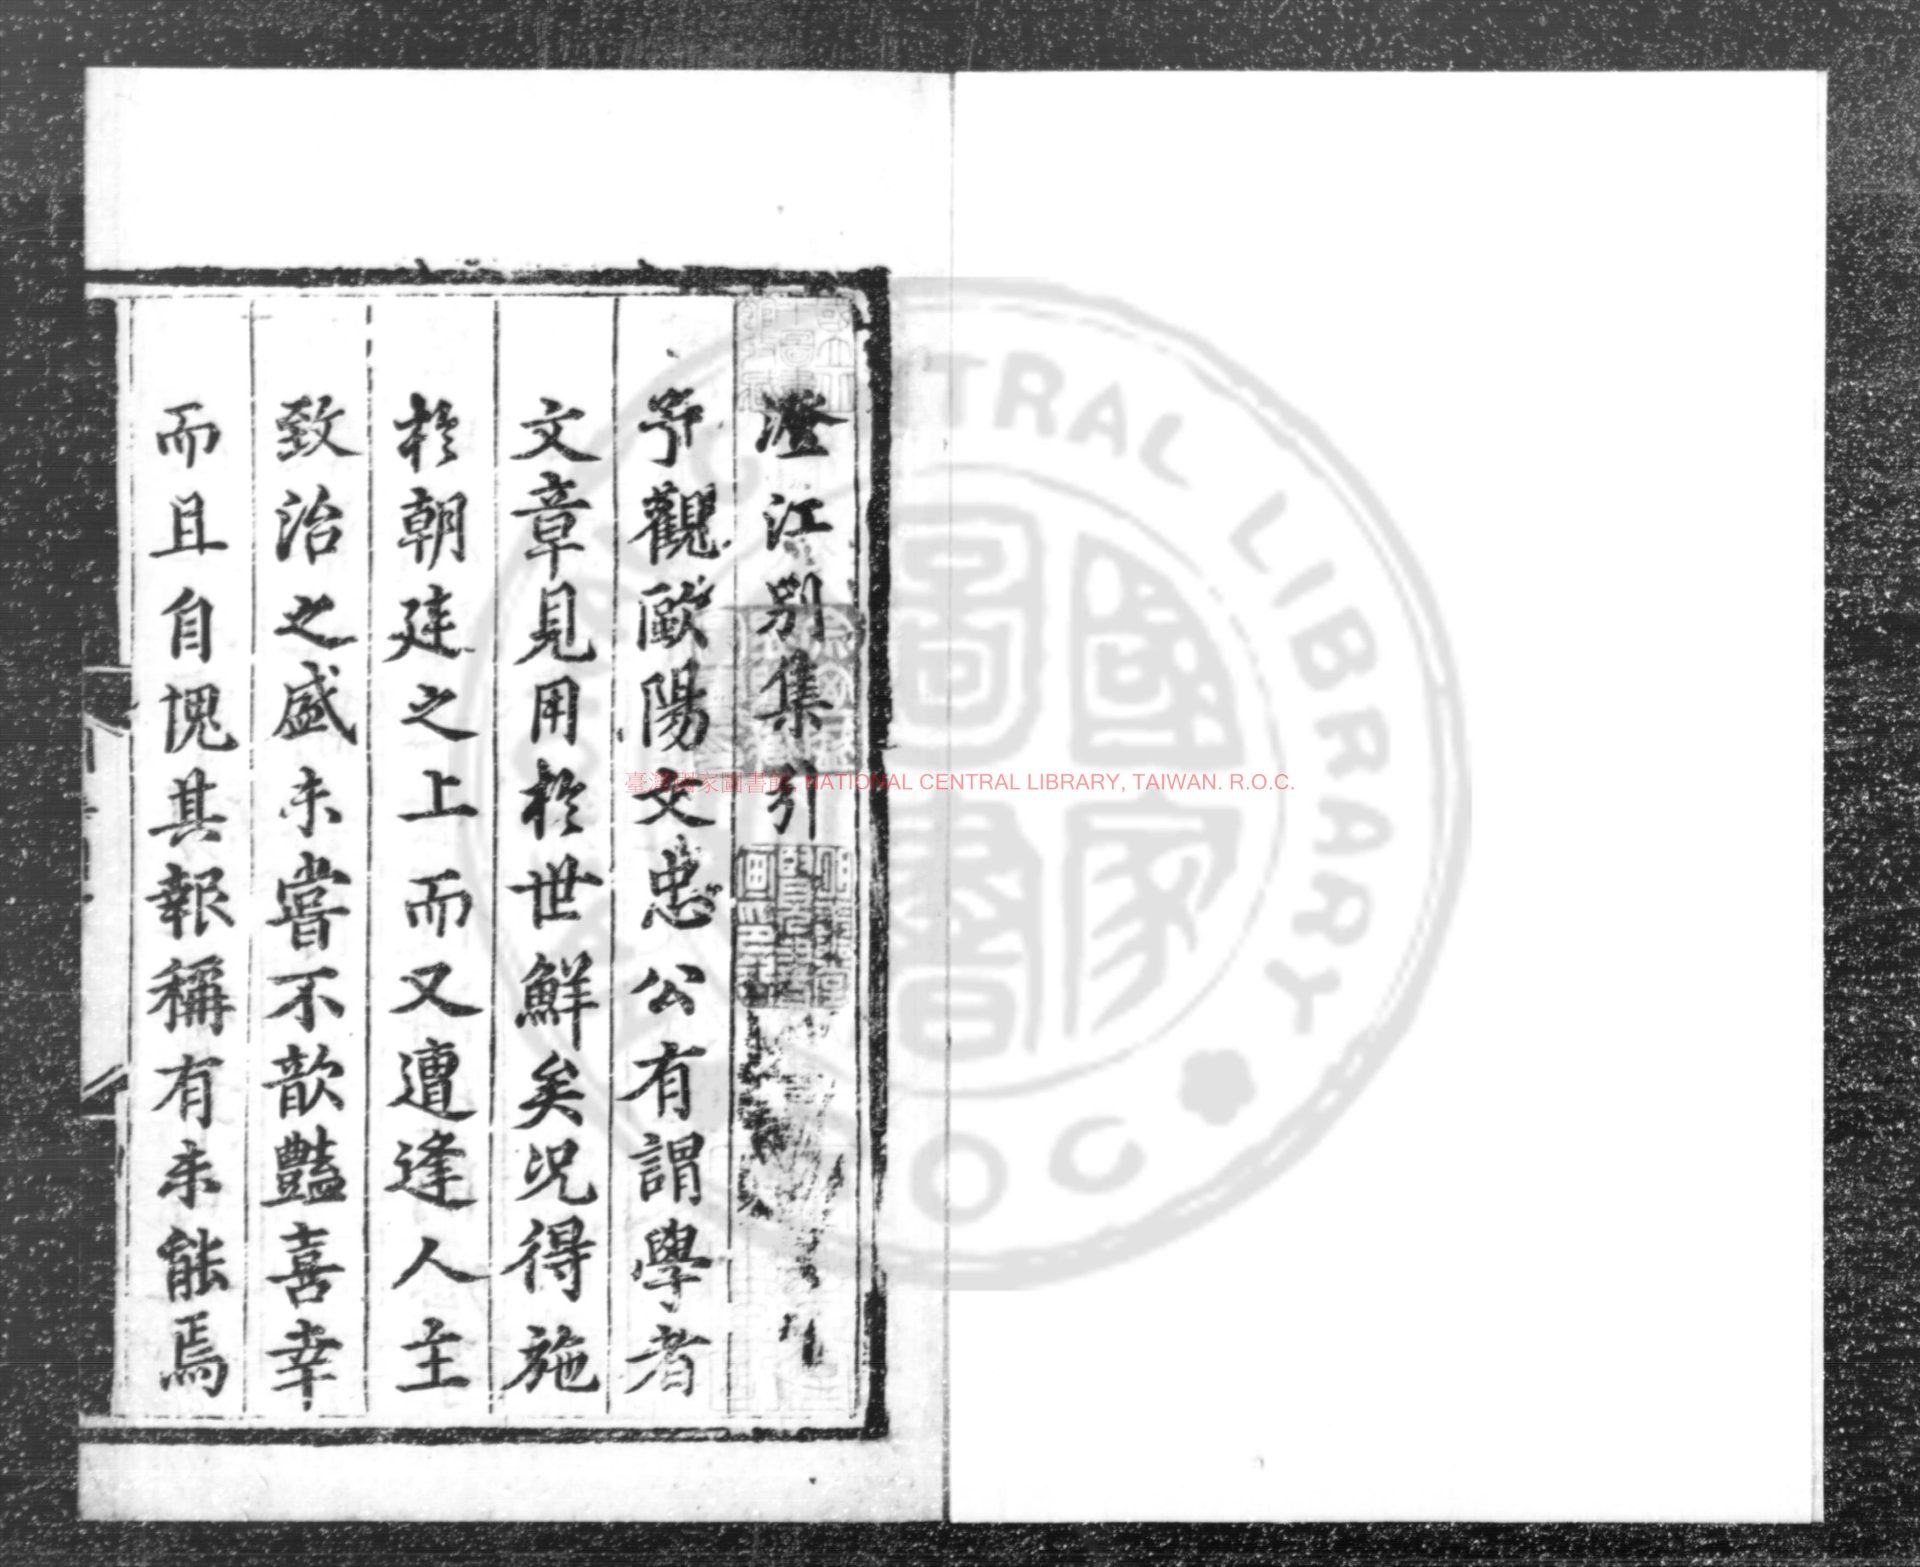 澄江別集引
予觀歐陽文忠公有謂學者
文章見用於世鮮矣況得施
於朝廷之上而又遭逢人主
致治之盛未嘗不歆豔喜幸
而且自愧其報稱有未能焉
臺灣國家圖書館, NATIONAL CENTRAL LIBRARY, TAIWAN. R.O.C.
CENTRAL LIBRARY
國家圖書